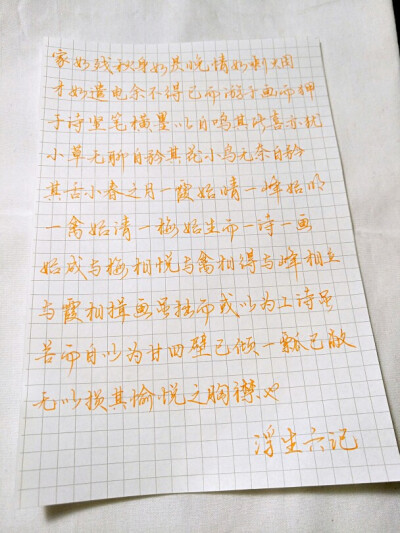 家如残秋身如昃晚情如剩烟
才如遣电余不得已而游于画而狎
于诗竖笔横墨以自鸣其所喜亦犹
小草无聊自矜其花小鸟无奈自矜
其舌小春之月一霞始晴一峰始明
一禽始清一梅始生而一诗一画
始成与梅相悦与禽相得与峰相立
与霞相揖画虽拙而或以为工诗虽
苦而自以为甘四壁已倾一瓢已敝
无以损其愉悦之胸襟也
浮生六记